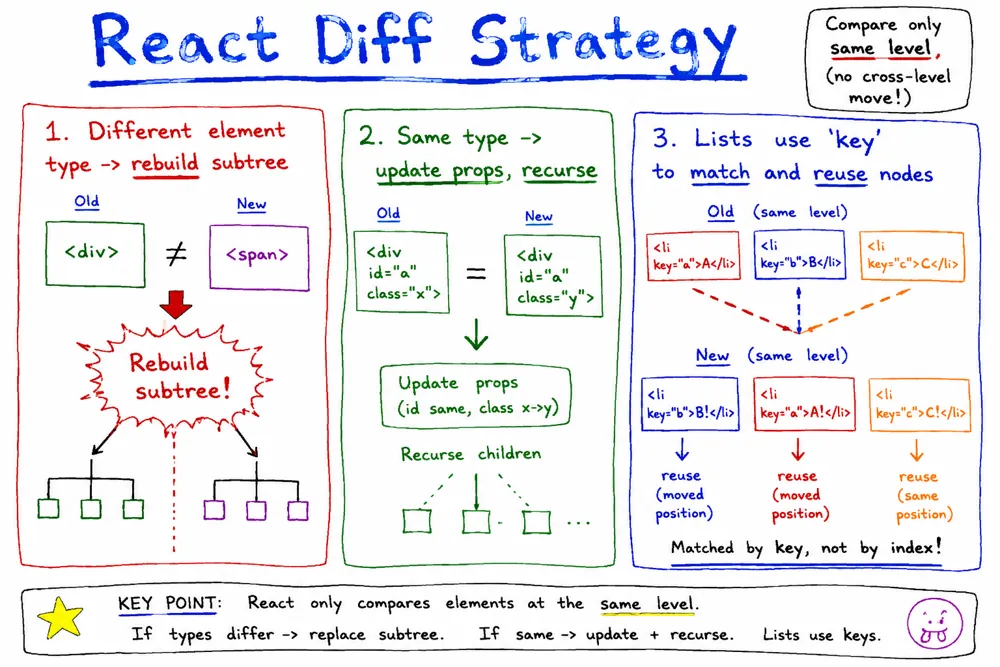 React Diff Strategy
Compare only
same level,
(no cross-level
move!)
1. Different element
type -> rebuild subtree
Old
New
<div>
≠
<span>
Rebuild
subtree!
2. Same type ->
update props, recurse
Old
New
<div
id="a"
class="x">
=
<div
id="a"
class="y">
Update props
(id same, class x->y)
Recurse children
...
3. Lists use 'key'
to match and reuse nodes
Old (same level)
<li
key="a">A</li>
<li
key="b">B</li>
<li
key="c">C</li>
New (same level)
<li
key="b">B!</li>
<li
key="a">A!</li>
<li
key="c">C!</li>
reuse
(moved
position)
reuse
(moved
position)
reuse
(same
position)
Matched by key, not by index!
KEY POINT: React only compares elements at the same level.
If types differ -> replace subtree. If same -> update + recurse. Lists use keys.